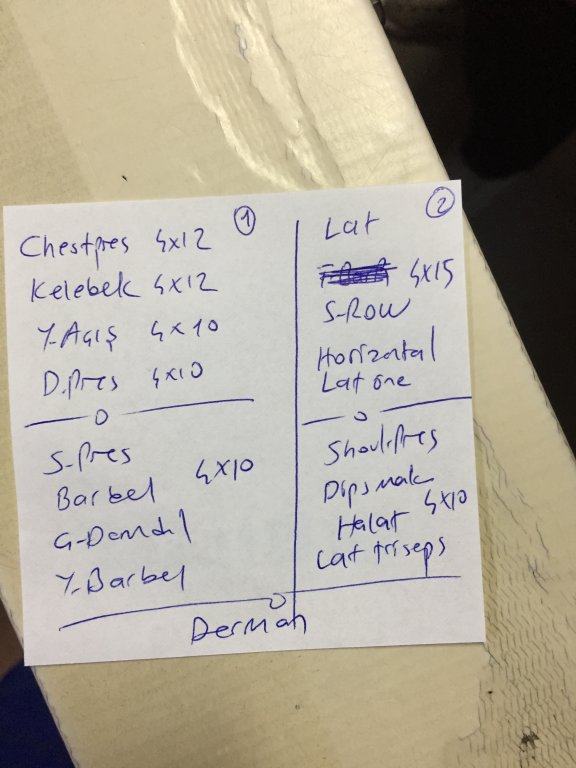 1
Chestpres 4x12
Kelebek 4x12
Y-Açış 4x10
D.pres 4x10
S-Pres
Barbel 4x10
G-Dambıl
Y-Barbel
2
Lat
4x15
S-ROW
Horizontal
Lat öne
Shoul.pres
Dips mak
Halat 4x10
Lat triseps
Derman